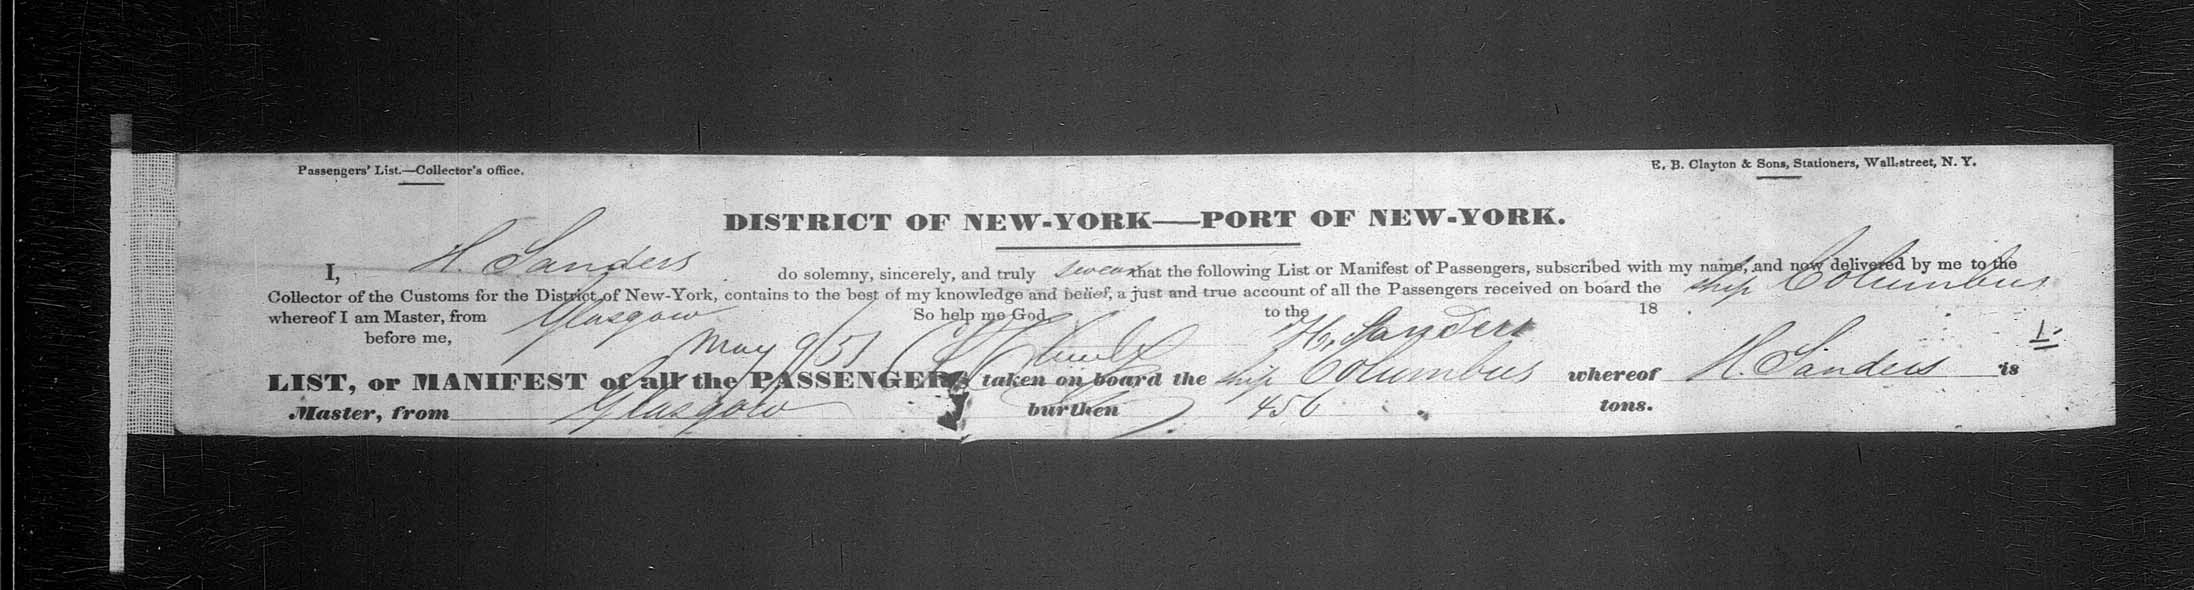 Passengers' List.—Collector's office.
E. B. Clayton & Sons, Stationers, Wall-street, N. Y.
DISTRICT OF NEW-YORK—PORT OF NEW-YORK.
I, H. Sanders do solemny, sincerely, and truly swear that the following List or Manifest of Passengers, subscribed with my name, and now delivered by me to the
Collector of the Customs for the District of New-York, contains to the best of my knowledge and belief, a just and true account of all the Passengers received on board the ship Columbus
whereof I am Master, from Glasgow So help me God to the 18
before me, May 9/51 H. Sanders
LIST, or MANIFEST of all the PASSENGERS taken on board the ship Columbus whereof H. Sanders is
Master, from Glasgow burthen 456 tons.